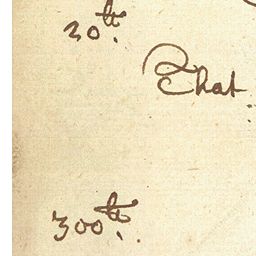 20th.
That
300th.